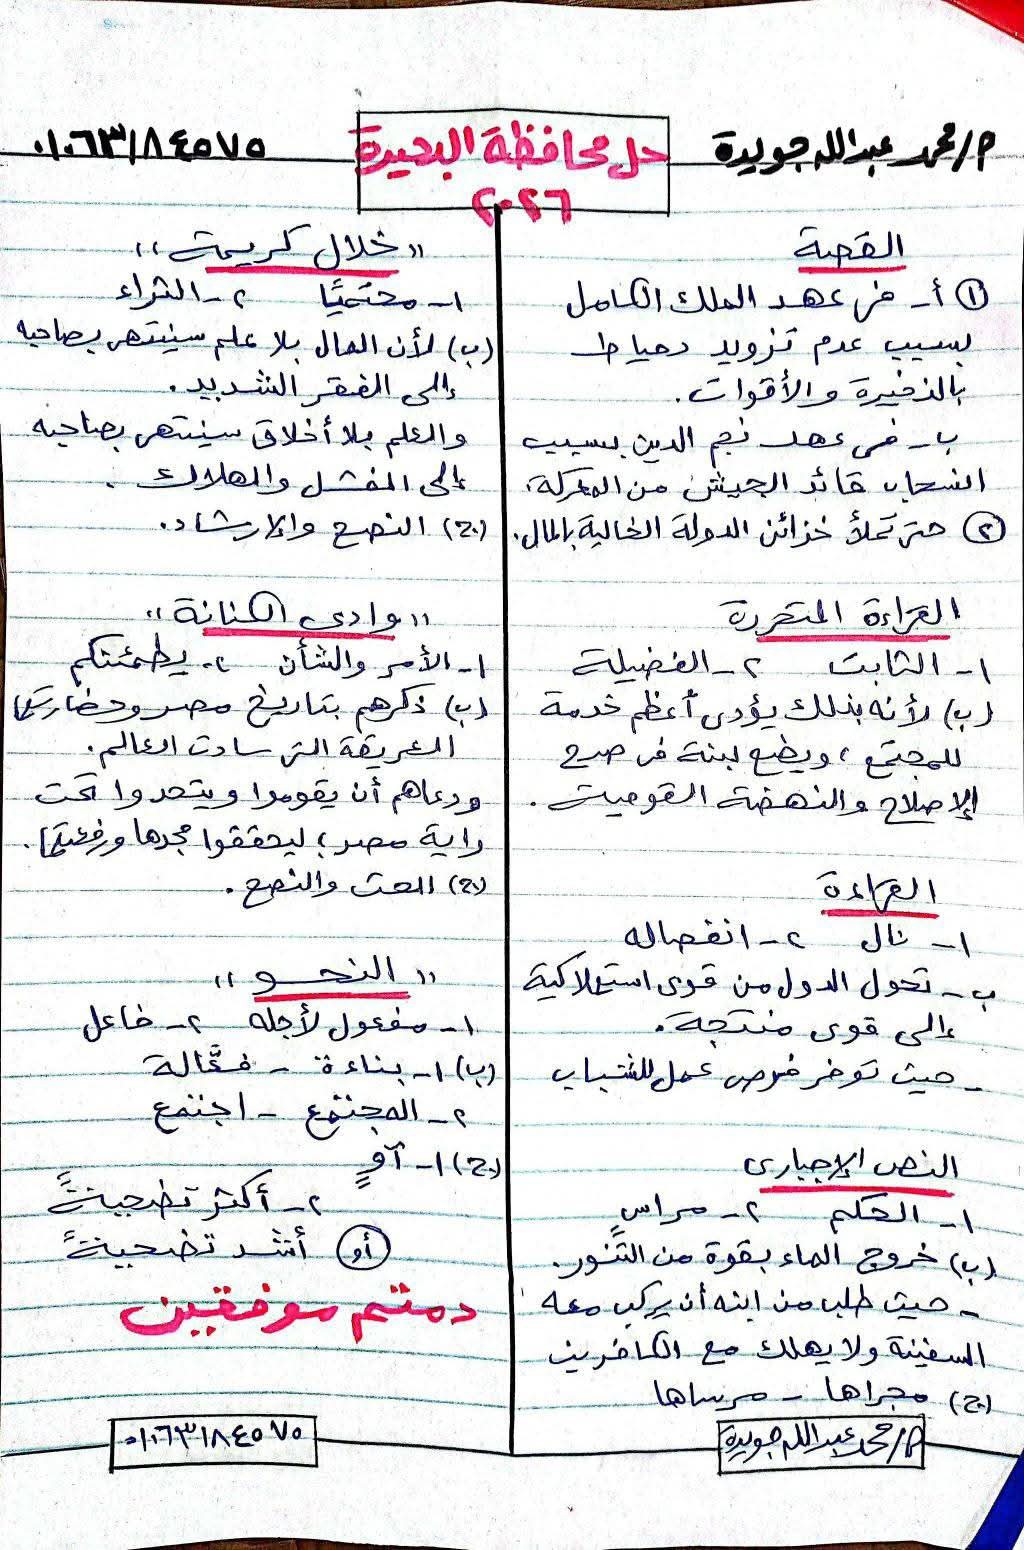 م/محمد عبدالله جويدة
حل محافظة البحيرة
٢٠٢٦
٠١٠٦٣١٨٤٥٧٥
القصة
① أ- فى عهد الملك الكامل
بسبب عدم تزويد دمياط
بالذخيرة والأقوات.
ب- فى عهد نجم الدين بسبب
انسحاب قائد الجيش من المعركة.
② حتى تملأ خزائن الدولة الخالية بالمال.
القراءة المتحررة
١- الثابت ٢- الفضيلة
(ب) لأنه بذلك يؤدى أعظم خدمة
للمجتمع، ويضع لبنة فى صرح
الإصلاح والنهضة القومية.
القراءة
١- نال ٢- انفصاله
ب- تحول الدول من قوى استهلاكية
إلى قوى منتجة.
- حيث توفر فرص عمل للشباب
النص الإجبارى
١- الحكم ٢- مراسٍ
(ب) خروج الماء بقوة من التنور.
- حيث طلب من ابنه أن يركب معه
السفينة ولا يهلك مع الكافرين
(ج) مجراها - مرساها
م/محمد عبدالله جويدة
"خلال كريمة"
١- محتميًا ٢- الثراء
(ب) لأن المال بلا علم سينتهى بصاحبه
إلى الفقر الشديد.
والعلم بلا أخلاق سينتهى بصاحبه
إلى الفشل والهلاك.
(ج) النصح والإرشاد.
"وادى الكنانة"
١- الأمر والشأن ٢- يطمئنكم
(ب) ذكرهم بتاريخ مصر وحضارتها
العريقة التى سادت العالم.
ودعاهم أن يقوموا ويتحدوا تحت
راية مصر؛ ليحققوا مجدها ورفعتها.
(ج) الحث والنصح.
"النحو"
١- مفعول لأجله ٢- فاعل
(ب) ١- بناءة - فعَّالة
٢- المجتمع - اجتمع
(ج) ١- آوٍ
٢- أكثر تضحيةً
أو أشد تضحيةً
دمتم موفقين
٠١٠٦٣١٨٤٥٧٥